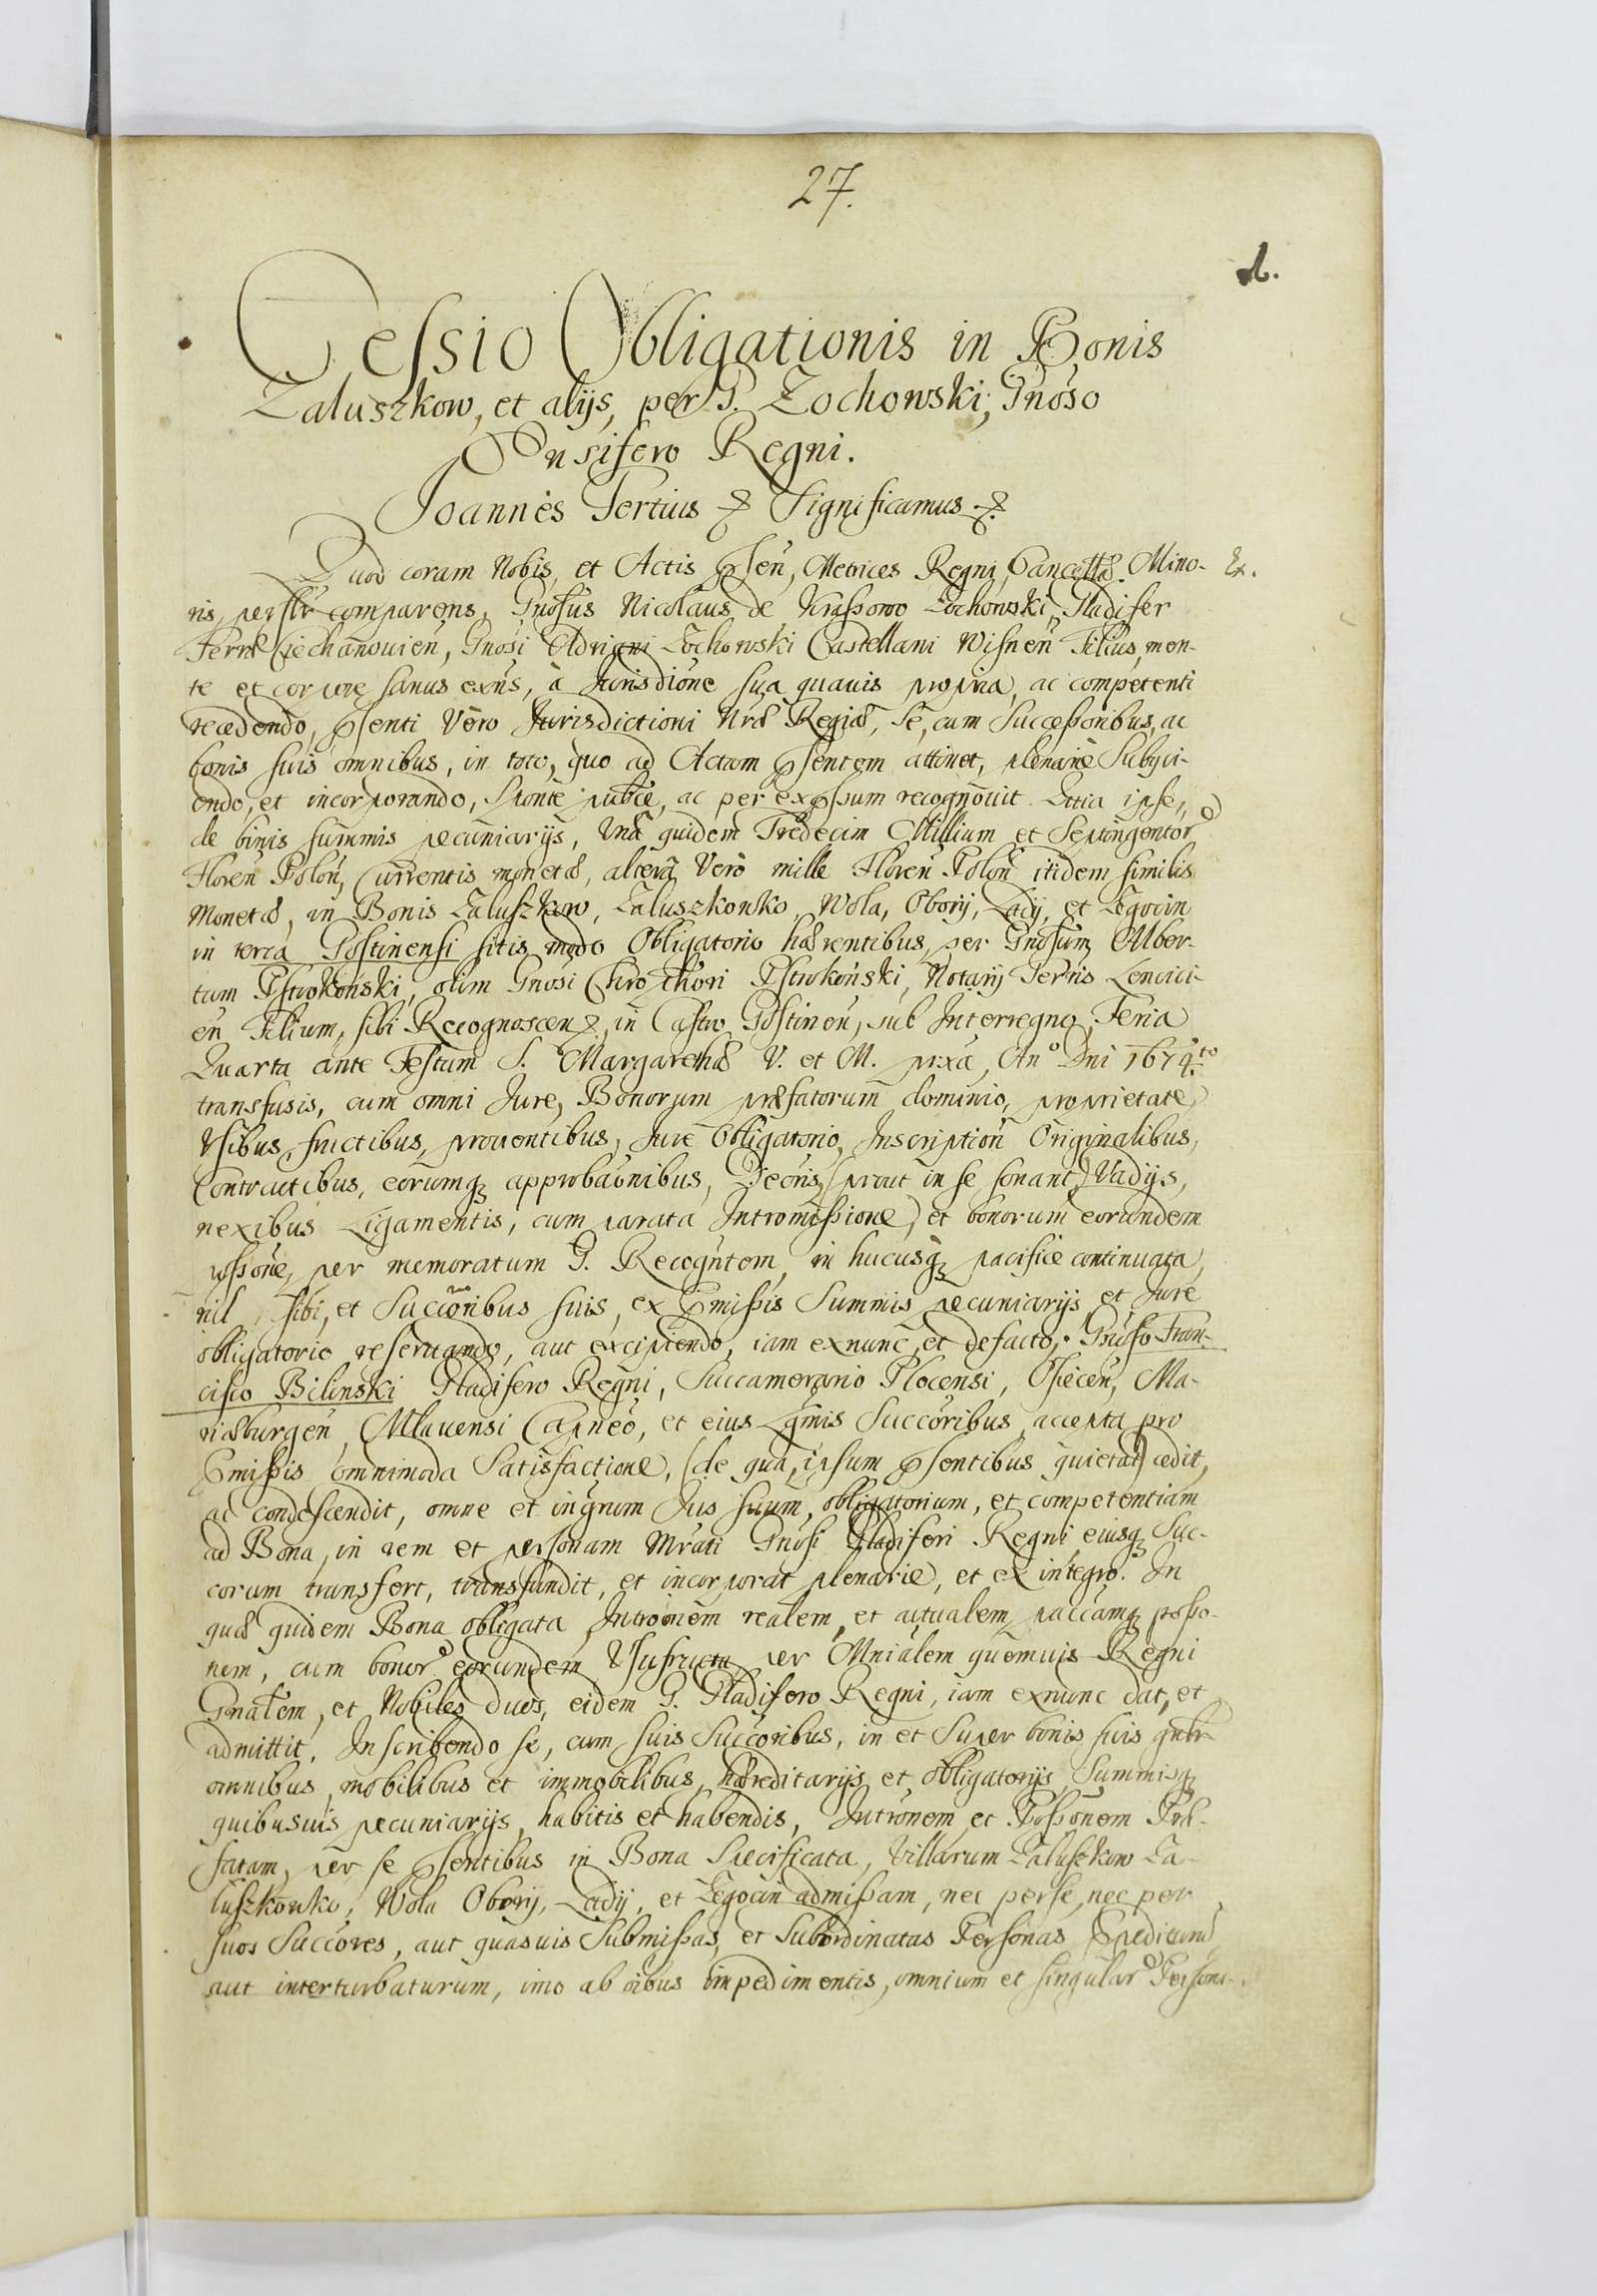 27.
Cessio Obligationis in Bonis
Załuszkow, et alijs, per G. Zochowski, Gnoso
Ensifero Regni.
Joannes Tertius & Significamus &.
Quod coram Nobis, et Actis Pńsen, Metrices Regni, Cancellæ Mino-
ris, perslr comparens, Gnosus Nicolaus de Krassowo Zochowski, Gladifer
Terræ Ciechanouien, Gnosi Adriani Zochowski Castellani Wisnen Filius, men-
te et corpore sanus exns, à Jurisdione sua quauis propria, ac competenti
recedendo, psenti Vero Jurisdictioni Nræ Regiæ, se, cum Successoribus, ac
bonis suis omnibus, in toto, quo ad Actum psentem attinet, plenarie Subyci-
endo, et incorporando, Sponte publce, ac per expssum recognouit. Quia ipse,
de binis summis pecuniarijs, Vna quidem Tredecim Millium et Septingentor
Floren Polon, Currentis monetæ, altera Vero mille Floren Polon itidem similis
Monetæ, in Bonis Zaluszkow, Zaluszkowko, Wola, Obory, Lady, et Zegocin
in terra Gostinensi sitis modo Obligatorio hærentibus, per Gnosum Alber-
tum Pstrokonski, olim Gnosi Pstrokonski, Notarij Terris Lencici-
en Filium, sibi Recognoscen, in Castro Gostinen, sub Interregno, Feria
Quarta ante Festum S. Margarethæ V. et M. prxa, Anº Dni 1674.to
transfusis, cum omni Jure, Bonorum præfatorum dominio, proprietate,
Vsibus, fructibus, prouentibus, Jure Obligatorio, Inscription Originalibus,
Contractibus, eorumq approbaonibus, Decris, (prout in se sonant) Vadijs,
nexibus Ligamentis, cum parata Intromissione, et bonorum eorundem
possone, per memoratum G. Recogntem, in hucusq pacifice continuata,
nil sibi, et Succoribus suis, ex Pmissis Summis pecuniarijs, et Jure
obligatorio reseruando, aut excipiendo, iam exnunc, et defacto, Gnoso Fran-
cisco Bilinski Gladifero Regni, Succamerario Plocensi, Osiecen, Ma-
riæburgen, Mlauensi Capneo, et eius Lgmis Succoribus, accepta pro
Pmissis omnimoda Satisfactione, (de qua, ipsum psentibus quietat) cedit,
ac condescendit, omne et ingrum Jus suum, obligatorium, et competentiam
ad Bona, in rem et personam Mrati Gnosi Gladiferi Regni, eiusq Suc-
corum transfert, transfundit, et incorporat plenarie, et ex integro. In
quæ quidem Bona obligata, Intromem realem, et actualem, paccamq posso-
nem, cum bonor eorundem Vsufructu, per Mnialem quemuis Regni
Gnalem, et Nobiles duos, eidem G. Gladifero Regni, iam exnunc dat, et
admittit. Inscribendo se, cum suis Succoribus, in et Super bonis suis gnlr
omnibus, mobilibus et immobilibus, hæreditarijs et obligatorijs, Summisq
quibusuis pecuniarijs, habitis et habendis, Intronem et Possonem Præ-
fatam, per se psentibus in Bona Specificata, Villarum Zaluszkow Za-
luszkowko, Wola Obory, Lady, et Zegocin admissam, nec perse, nec per
suos Succores, aut quasuis Submissas, et Subordinatas Personas,
aut interturbaturum, imo ab oibus impedimentis, omnium et singular Persona-